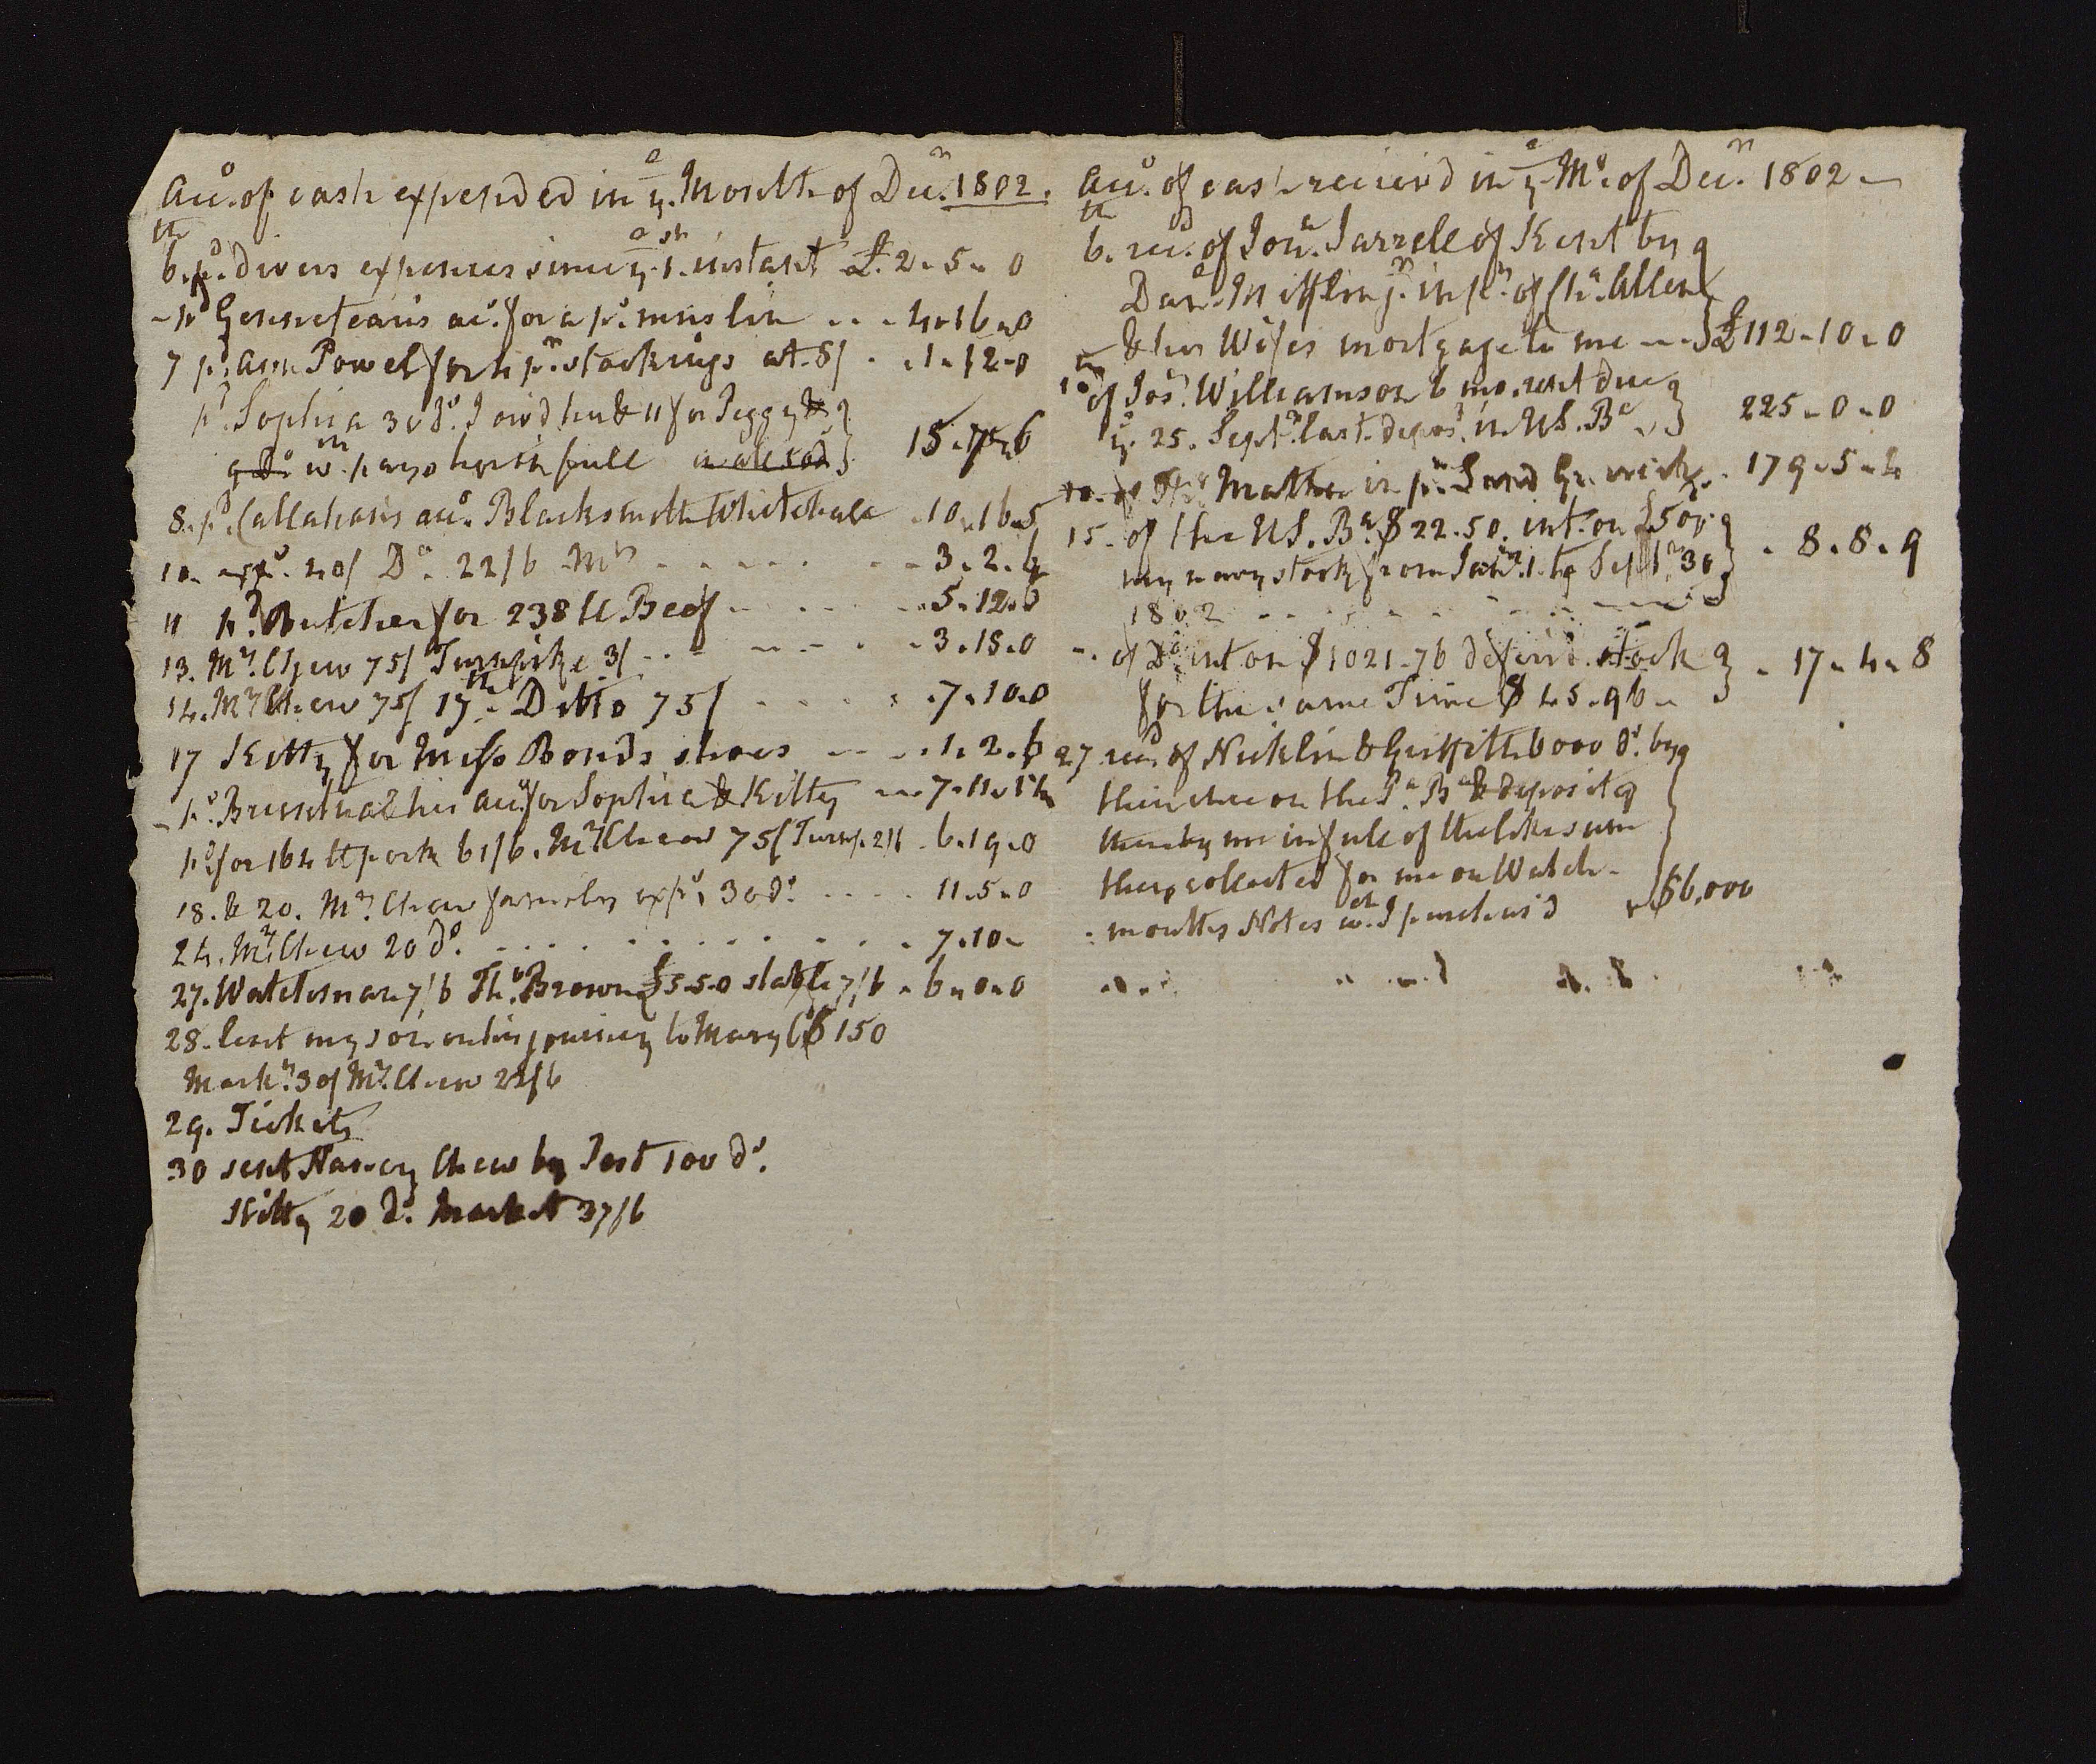 Acc.o of cash expended in ye. Month of Decr. 1802.
6th. pd. divers expences since ye. 1st. instant £. 2. 5. 0
- pd Genneteau's acc.o for a ps. muslin . . . 4. 16. 0
7 pd. Ann Powel for 4 pr. stockings at 8/ . . 1. 12. 0
pd. Sophia 30 do. I ow'd her & 11 for Peggy &
wch. pays her in full 15. 7. 6
8. pd. Callahan's acco. Blacksmith Whitehall . 10. 16. 5
10. exps. 40/ Do. 22/6 Mt . . . . 3. 2. 6
11 pd. Butcher for 238 lb Beef . . . . 5. 12. 0
13. Mr. Chew 75/ Turnpike 3/ . . . . 3. 18. 0
14. Mr. Chew 75/ 17th. Ditto 75/ . . . . 7. 10. 0
17 Kitty for Miss Bond's shoes . . . . 1. 2. 6
- pd. acco. for Sophia & Kitty . . . 7. 11.
pd. for 164 lb pork 61/6. Mr. Chew 75/ Turnp. 2/6 . 6. 19. 0
18. & 20. Mr. Chew family exps. 30 do. . . . . 11. 5. 0
24. Mr. Chew 20 do. . . . . . . . . 7. 10 -
27. Watchman 7/6 Ths. Brown £5-5-0 stable 7/6 . 6. 0. 0
28. lent my son on his journey to Maryld $ 150
Mark.t 30/ Mr. Chew 22/6
29. Tickets
30 sent Nancy Chew by Post 100 do.
Kitty 20 do. Market 37/6
Acc.o of cash receiv'd in ye. Mo. of Decr. 1802 -
6th. recd. of Jona. Jarrele of Kent by
Danl. Mifflin jr. in pt. of Chs. Allen
& his Wifes mortgage to me - - £112 - 10. 0
10th of Jos. Williamson 6 mo. rent due
ye. 25. Septr. last. depos'd. in US. Bk. 225. 0. 0
10. of Mather in pt. Land 179. 5. 4
15. of the US. Bk. $ 22.50. int. on 500
my navy stock from Jany. 1. to Septr. 30 . 8. 8. 9
1802 - - - -
-. of Do. int on $1021-76 deferr'd stock . 17. 4. 8
for the same Time $ 45.96 -
27 recd. of Nicklin & Griffith 6000 do. by
their chec on the Pa. Bk & deposited
there by me in full of the like sum
they collected for me on Watch-
. mouths Notes wch. I purchas'd $6,000